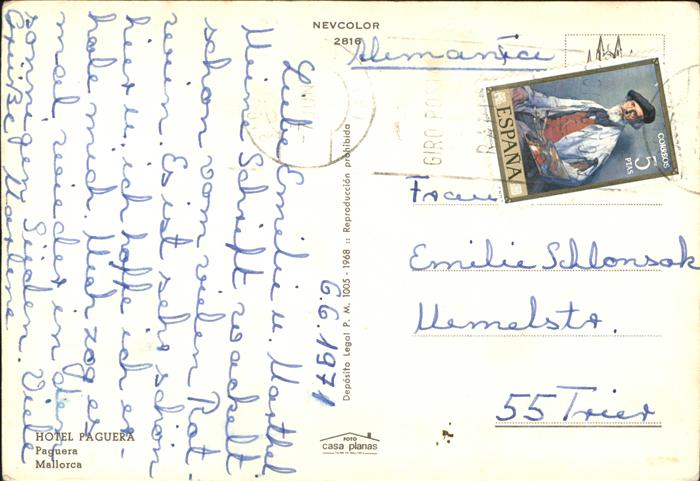 NEVCOLOR
2816
Alemania
GIRO POS
ESPAÑA
CORREOS
5
PTAS
6.6.1971
Liebe Emilie u. Marthel.
Meine Schrift wackelt
schon vom vielen Rat-
reien. Es ist sehr schön
hier u. ich hoffe ich er-
hole mich. Mich zog es
mal wieder in den
sonnigen Süden. Viele
Grüße Marlene.
Depósito Legal P. M. 1005 - 1968 :: Reproducción prohibida
Frau
Emilie Schlonsok
Memelstr.
55 Trier
HOTEL PAGUERA
Paguera
Mallorca
FOTO
casa planas